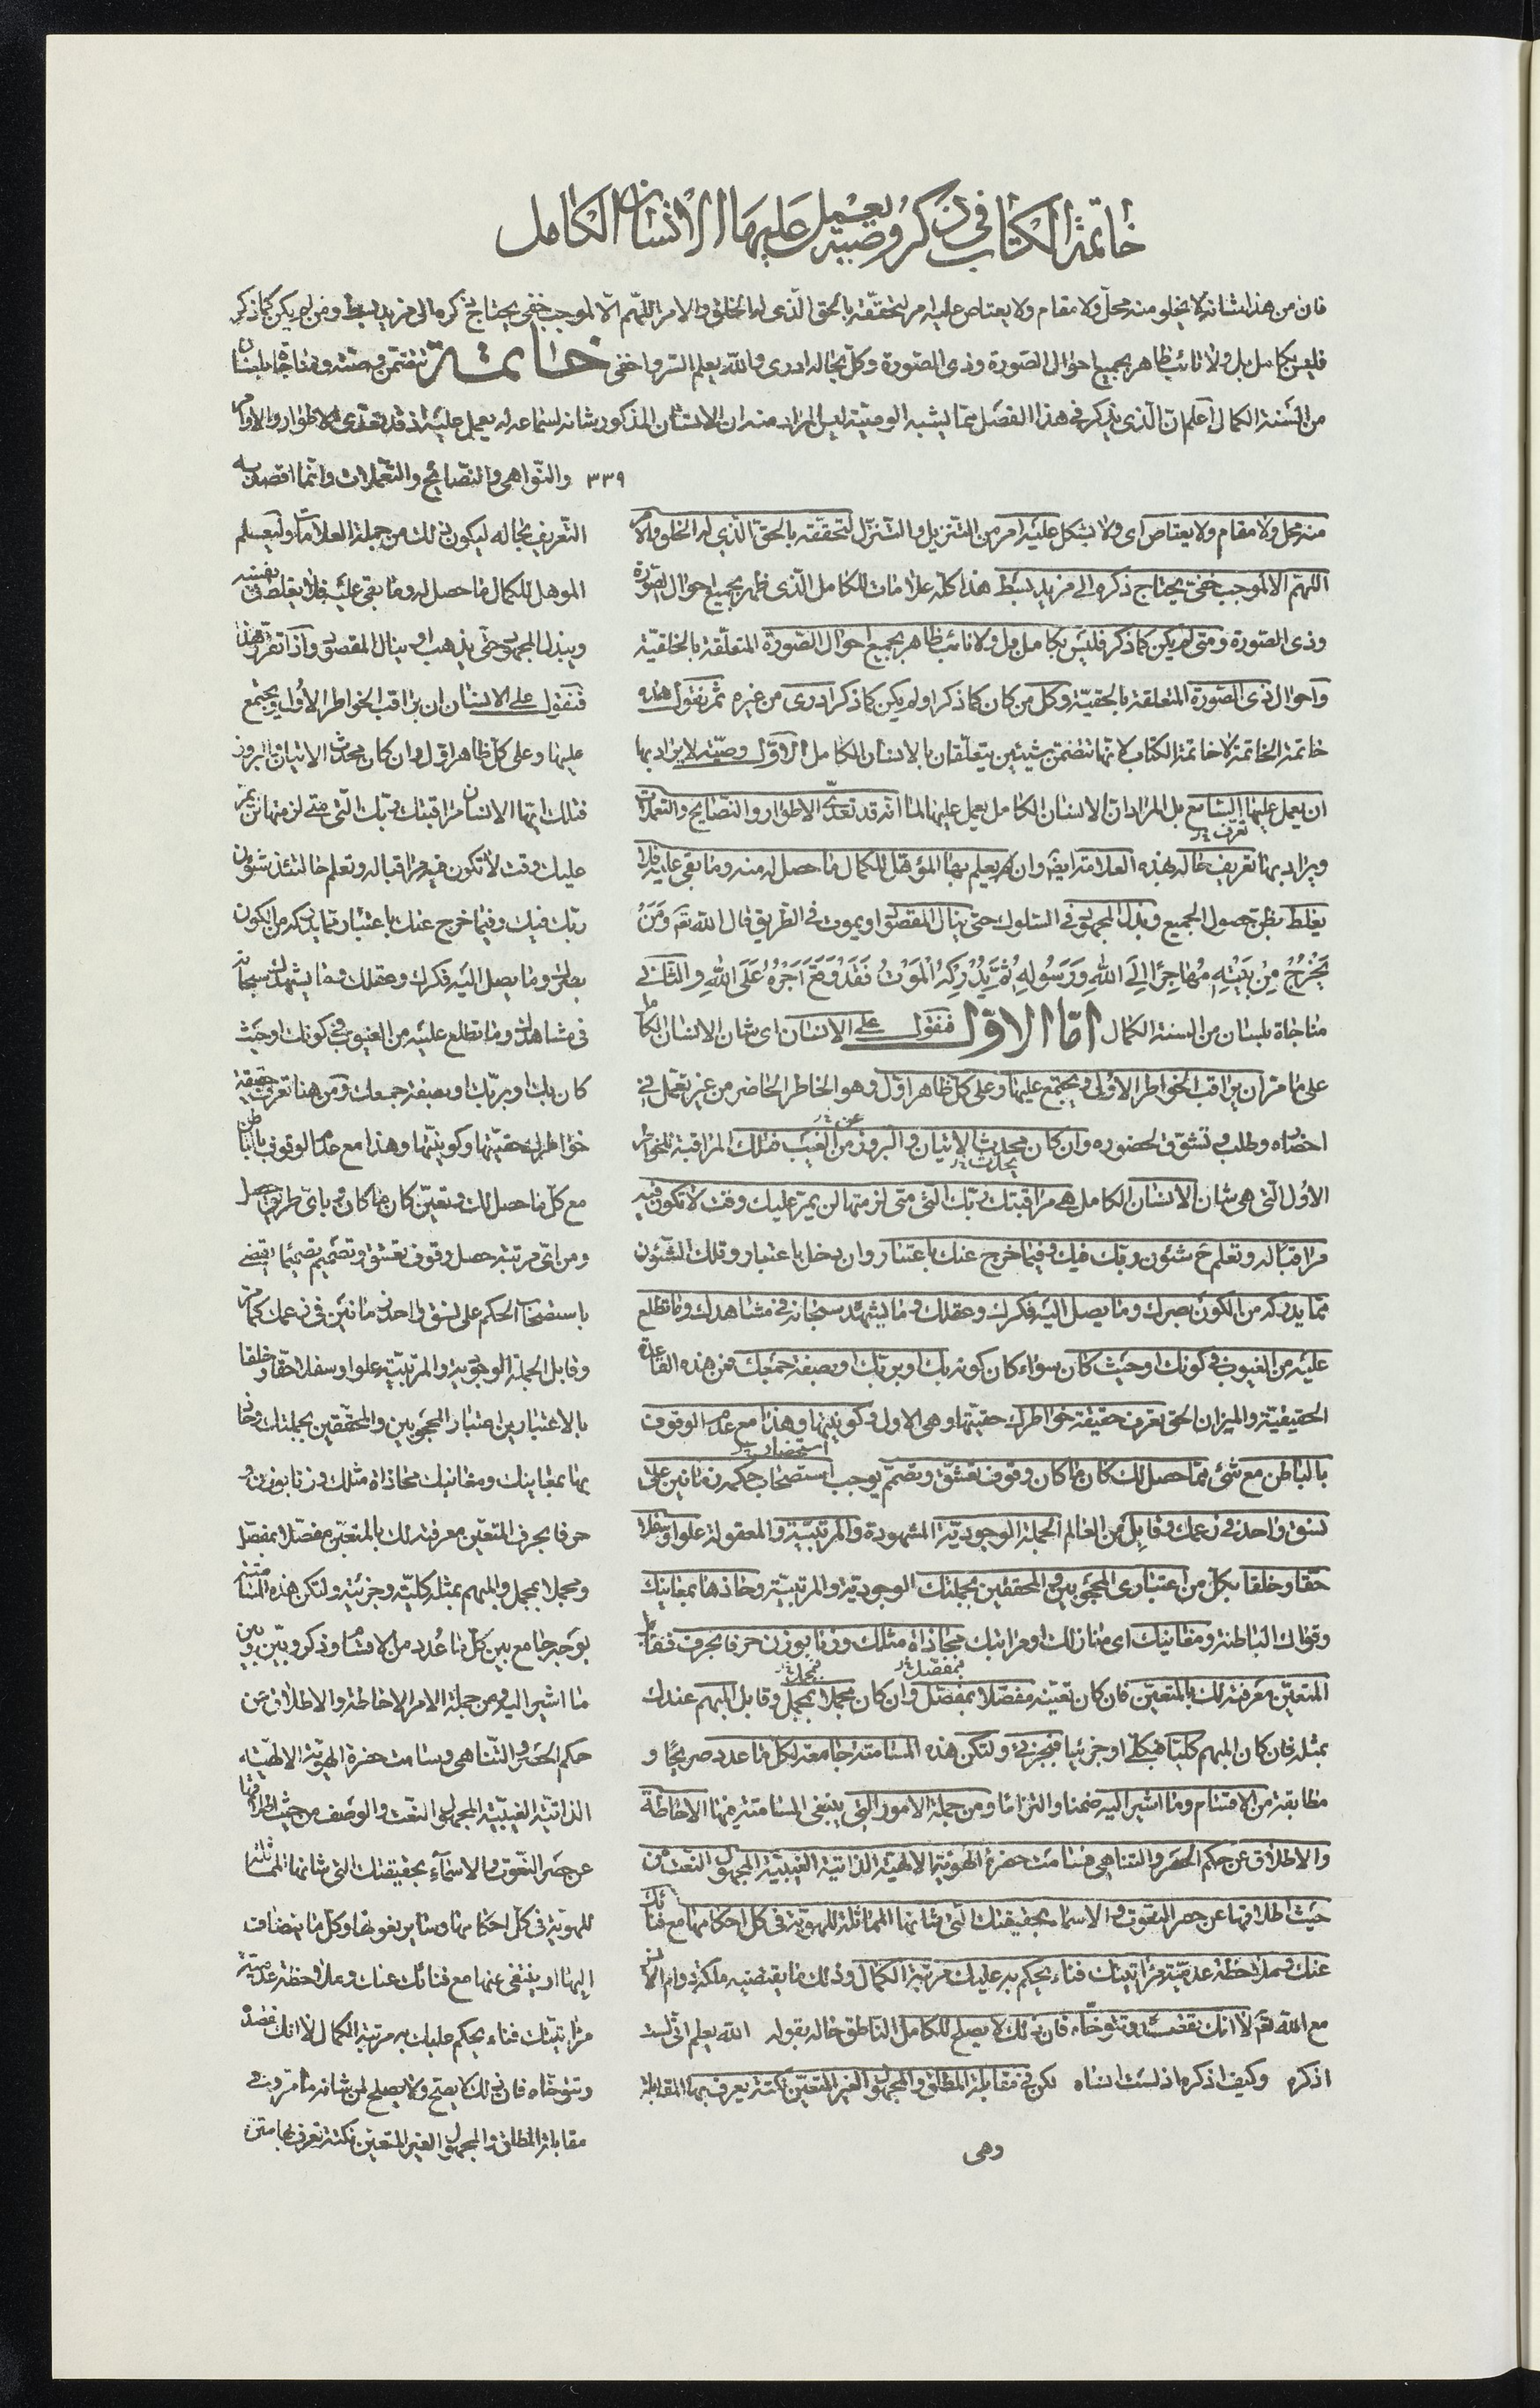 خاتمة الكتاب في ذكر وصية يعمل عليها الانسان الكامل
فان من هذا شانه لا يخلو منه محل ولا مقام ولا يعتاص عليه امر لتحققه بالحق الذى له الخلق والامر اللهم الا لموجب خفى يحتاج ذكره الى مزيد بسط ومن لم يكن كما ذكر
فليس بكامل بل ولا نائب ظاهر بجميع احوال الصورة وذى الصورة وكل بحاله ادرى والله يعلم السر واخفى خاتمة تتضمن وصية ومناجاة بلسان
من السنة الكمال اعلم ان الذى يذكر فى هذا الفصل مما يشبه الوصية ليس المراد منه ان الانسان المذكور شانه لسماعه له يعمل عليه اذ قد تعدى الاطوار والاوامر
٣٣٩ والنواهى والنصائح والتعملات وانما اقصد به
منه محل ولا مقام ولا يعتاص اى ولا يشكل عليه امر من التنزيل والتنزل لتحققه بالحق الذي له الخلق والامر
اللهم الا لموجب خفى يحتاج ذكره الى مزيد بسط هذا كله علامات للكامل الذى ظهر بجميع احوال الصورة
وذى الصورة ومتى لم يكن كما ذكر فليس بكامل بل ولا نائب ظاهر بجميع احوال الصورة المتعلقة بالخلقية
واحوال ذى الصورة المتعلقة بالحقية وكل من كان كما ذكر او لم يكن كما ذكر ادرى من غيره ثم نقول هذه
خاتمة الخاتمة لا خاتمة الكتاب لانها تتضمن شيئين يتعلقان بالانسان الكامل الاول وصية لا يراد بها
ان يعمل عليها السامع بل المراد ان الانسان الكامل يعمل عليها لما انه قد تعدى الاطوار والنصايح والتعملات
ويراد بها تعريف حاله بهذه العلامة ايضا وان يعلم بها المؤهل للكمال ما حصل له منه وما بقى عليه فلا
يغلط بظن حصول الجميع وبذل المجهود فى السلوك حتى ينال المقصود او يموت فى الطريق قال الله تع ومن
يخرج من بيته مهاجرا الى الله ورسوله ثم يدركه الموت فقد وقع اجره على الله والثانى
مناجاة بلسان من السنة الكمال اما الاول فنقول على الانسان اى شان الانسان الكامل
على ما مر ان يراقب الخواطر الاولى ويجتمع عليها وعلى كل ظاهر اول وهو الخاطر الحاضر من غير تعمل في
احضاره وطلب وتشوق لحضوره وان كان محدث الاتيان والبروز من الغيب فتلك المراقبة للخواطر
الاول التى هى شان الانسان الكامل هى مراقبتك ربك التى متى لزمتها لن يمر عليك وقت لا تكون فيه
مراقبا له وتعلم ح شئون ربك فيك وفيما خرج عنك باعتبار وان دخل باعتبار وتلك الشئون
مما يدركه من الكون بصرك وما يصل اليه فكرك وعقلك وما يشهد سبحانه فى مشاهدك وما تطلع
عليه من الغيوب فى كونك او حيث كان سواء كان كونه بك او بربك او بصفة جمعك فمن هذه القاعدة
الحقيقية والميزان الحق تعرف حقيقة خواطرك حقيتها وهى الاول وكونيتها وهذا مع عدم الوقوف
بالباطن مع شئ مما حصل لك كان ما كان وقوف تعشق وتصمم يوجب استصحاب حكمه زمانين على
نسق واحد فى زعمك وقابل من العالم الجملة الوجودية المشهودة والمرتبية والمعقولة علوا وسفلا
حقا وخلقا بكل من اعتبارى المحجوبين والمحققين بجملتك الوجودية والمرتبية وحاذها بمعاينك
وقواك الباطنة ومقاينك اى منازلك او مراتبك محاذاة مثلك وزنا بوزن حرفا بحرف فقابل
المتعين معرفة لك بالمتعين فان كان تعينه مفصلا بمفصل وان كان مجملا بمجمل وقابل المبهم عندك
بمثله فان كان المبهم كليا فبكلى او جزئيا فبجزئى ولتكن هذه المسامتة جامعة لكل ما عدد صريحا و
مطابقة من الاقسام وما اشير اليه ضمنا والتزاما ومن جملة الامور التى ينبغى المسامتة فيها الاحاطة
والاطلاق عن حكم الحصر والتناهى فسامت حضرة الهوية الالهية الذاتية الغيبية المجهول النعت من
حيث اطلاقها عن حصر النعوت والاسماء بحقيقتك التى شانها المماثلة للهوية فى كل احكامها مع فنائك
عنك وملاحظة عدمية مراتبتك فناء يحكم به عليك مرتبة الكمال وذلك ما يقتضيه ملكة دوام الان
مع الله تع لا انك تقصده وتتوخاه فان ذلك لا يصلح للكامل الناطق حاله بقوله الله يعلم انى لست
اذكره وكيف اذكره اذ لست انساه لكن فى مقابلة المطلق والمجهول الغير المتعين نكتة يعرف بها المقابلة
وهى
التعريف بحاله ليكون ذلك من جملة العلامات وليعلم
الموهل للكمال ما حصل له وما بقى عليه فلا يغلط فى نفسه
ويبذل المجهود حتى يذهب او ينال المقصود واذا تقرر هذا
فنقول على الانسان ان يراقب الخواطر الاول ويجتمع
عليها وعلى كل ظاهر اول وان كان محدث الاتيان والبروز
فتلك ايها الانسان مراقبتك ربك التى متى لزمتها لن يمر
عليك وقت لا تكون فيه مراقبا له وتعلم حالتئذ شئون
ربك فيك وفيما خرج عنك باعتبار مما يدركه من الكون
بصرك وما يصل اليه فكرك وعقلك وما يشهدك سبحانه
فى مشاهدك وما تطلع عليه من الغيوب فى كونك او حيث
كان بك او بربك او بصفة جمعك ومن هنا تعرف حقيقة
خواطرك حقيتها وكونيتها وهذا مع عدم الوقوف بالباطن
مع كل ما حصل لك وتعين كان ما كان وباى طريق حصل
ومن اى مرتبة حصل وقوف تعشق وتصميم تصميما يقضى
باستصحاب الحكم على نسق واحد زمانين فى زعمك كما مر
وقابل الجملة الوجودية والمرتبية علوا وسفلا حقا وخلقا
بالاعتبارين اعتبار المحجوبين والمحققين بجملتك وحاذ
بها بمعاينك ومغانيك محاذاة مثلك وزنا بوزن و
حرفا بحرف المتعين معرفة لك بالمتعين مفصلا بمفصل
ومجملا بمجمل والمبهم بمثله كلية وجزئية ولتكن هذه المسامتة
بوجه جامع بين كل ما عدد من الاقسام وذكر وبين
ما اشير اليه ومن جملة الامر الاحاطة والاطلاق عن
حكم الحصر والتناهى وسامت حضرة الهوية الالهية
الذاتية الغيبية المجهول النعت والوصف من حيث اطلاقها
عن حصر النعوت والاسماء بحقيقتك التى شانها المماثلة
للهوية فى كل احكامها وساير نعوتها وكل ما ينضاف
اليها او ينتفى عنها مع فنائك عنك وملاحظة عدمية
مراتبيتك فناء يحكم عليك به مرتبة الكمال لا انك تقصد
وتتوخاه فان ذلك لا يصح ولا يصلح لمن شانه ما مر وفى
مقابلة المطلق والمجهول الغير المتعين نكتة تعرف بها متى